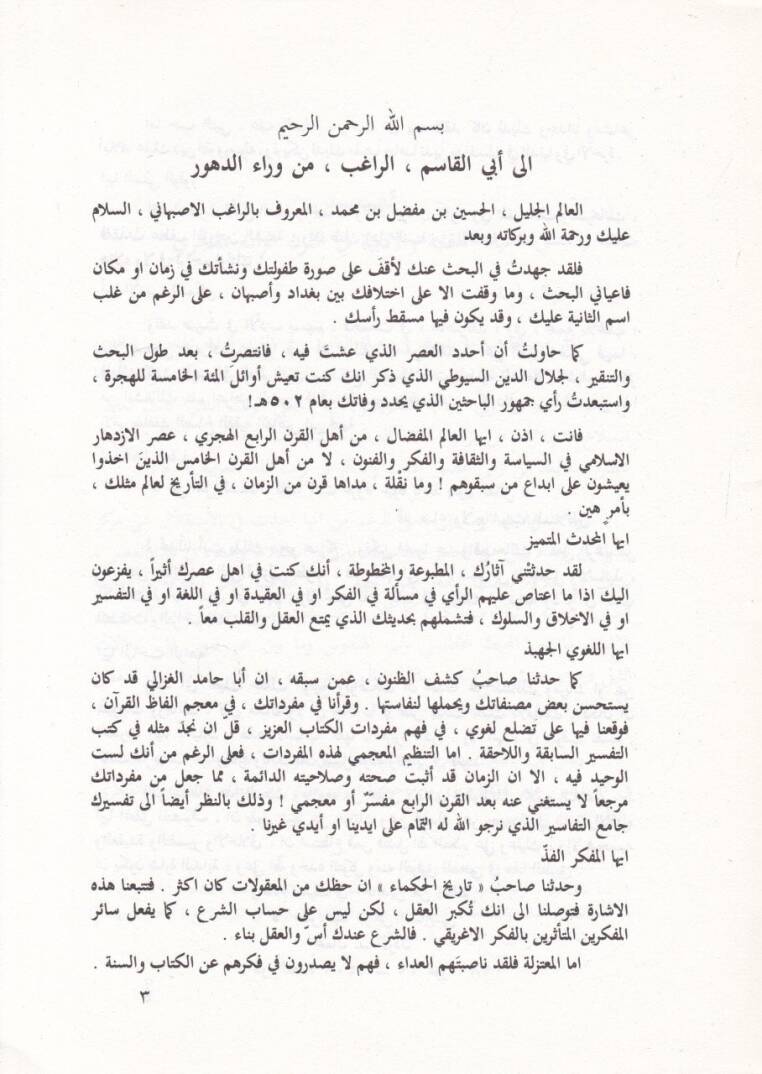 بسم الله الرحمن الرحيم
الى أبي القاسم ، الراغب ، من وراء الدهور
العالم الجليل ، الحسين بن مفضل بن محمد ، المعروف بالراغب الاصبهاني ، السلام
عليك ورحمة الله وبركاته وبعد
فلقد جهدتُ في البحث عنك لأقفَ على صورة طفولتك ونشأتك في زمان او مكان
فاعياني البحث ، وما وقفت الا على اختلافك بين بغداد وأصبهان ، على الرغم من غلب
اسم الثانية عليك ، وقد يكون فيها مسقط رأسك .
كما حاولتُ أن أحدد العصر الذي عشتَ فيه ، فانتصرتُ ، بعد طول البحث
والتنقير ، لجلال الدين السيوطي الذي ذكر انك كنت تعيش أوائل المئة الخامسة للهجرة ،
واستبعدتُ رأي جمهور الباحثين الذي يحدد وفاتك بعام ٥٠٢ هـ !
فانت ، اذن ، ايها العالم المفضال ، من أهل القرن الرابع الهجري ، عصر الازدهار
الاسلامي في السياسة والثقافة والفكر والفنون ، لا من أهل القرن الخامس الذينَ اخذوا
يعيشون على ابداع من سبقوهم ! وما نقْلة ، مداها قرن من الزمان ، في التأريخ لعالم مثلك ،
بأمرٍ هين .
ايها المحدث المتميز
لقد حدثتْني آثارُك ، المطبوعة والمخطوطة ، أنك كنت في اهل عصرك أثيراً ، يفزعون
اليك اذا ما اعتاص عليهم الرأي في مسألة في الفكر او في العقيدة او في اللغة او في التفسير
او في الاخلاق والسلوك ، فتشملهم بحديثك الذي يمتع العقل والقلب معاً .
ايها اللغوي الجهبذ
كما حدثنا صاحبُ كشف الظنون ، عمن سبقه ، ان أبا حامد الغزالي قد كان
يستحسن بعض مصنفاتك ويحملها لنفاستها . وقرأنا في مفرداتك ، في معجم الفاظ القرآن ،
فوقعنا فيها على تَضلع لغوي ، في فهم مفردات الكتاب العزيز ، قلّ ان نجدَ مثله في كتب
التفسير السابقة واللاحقة . اما التنظيم المعجمي لهذه المفردات ، فعلى الرغم من أنك لست
الوحيد فيه ، الا ان الزمان قد أثبت صحته وصلاحيته الدائمة ، مما جعل من مفرداتك
مرجعاً لا يستغني عنه بعد القرن الرابع مفسّرٌ أو معجمي ! وذلك بالنظر أيضاً الى تفسيرك
جامع التفاسير الذي نرجو الله له التمام على ايدينا او أيدي غيرنا .
ايها المفكر الفذّ
وحدثنا صاحبُ « تاريخ الحكماء » ان حظك من المعقولات كان اكثر . فتتبعنا هذه
الاشارة فتوصلنا الى انك تُكبر العقل ، لكن ليس على حساب الشرع ، كما يفعل سائر
المفكرين المتأثرين بالفكر الاغريقي . فالشرع عندك أسّ والعقل بناء .
اما المعتزلة فلقد ناصبتَهم العداء ، فهم لا يصدرون في فكرهم عن الكتاب والسنة .
٣